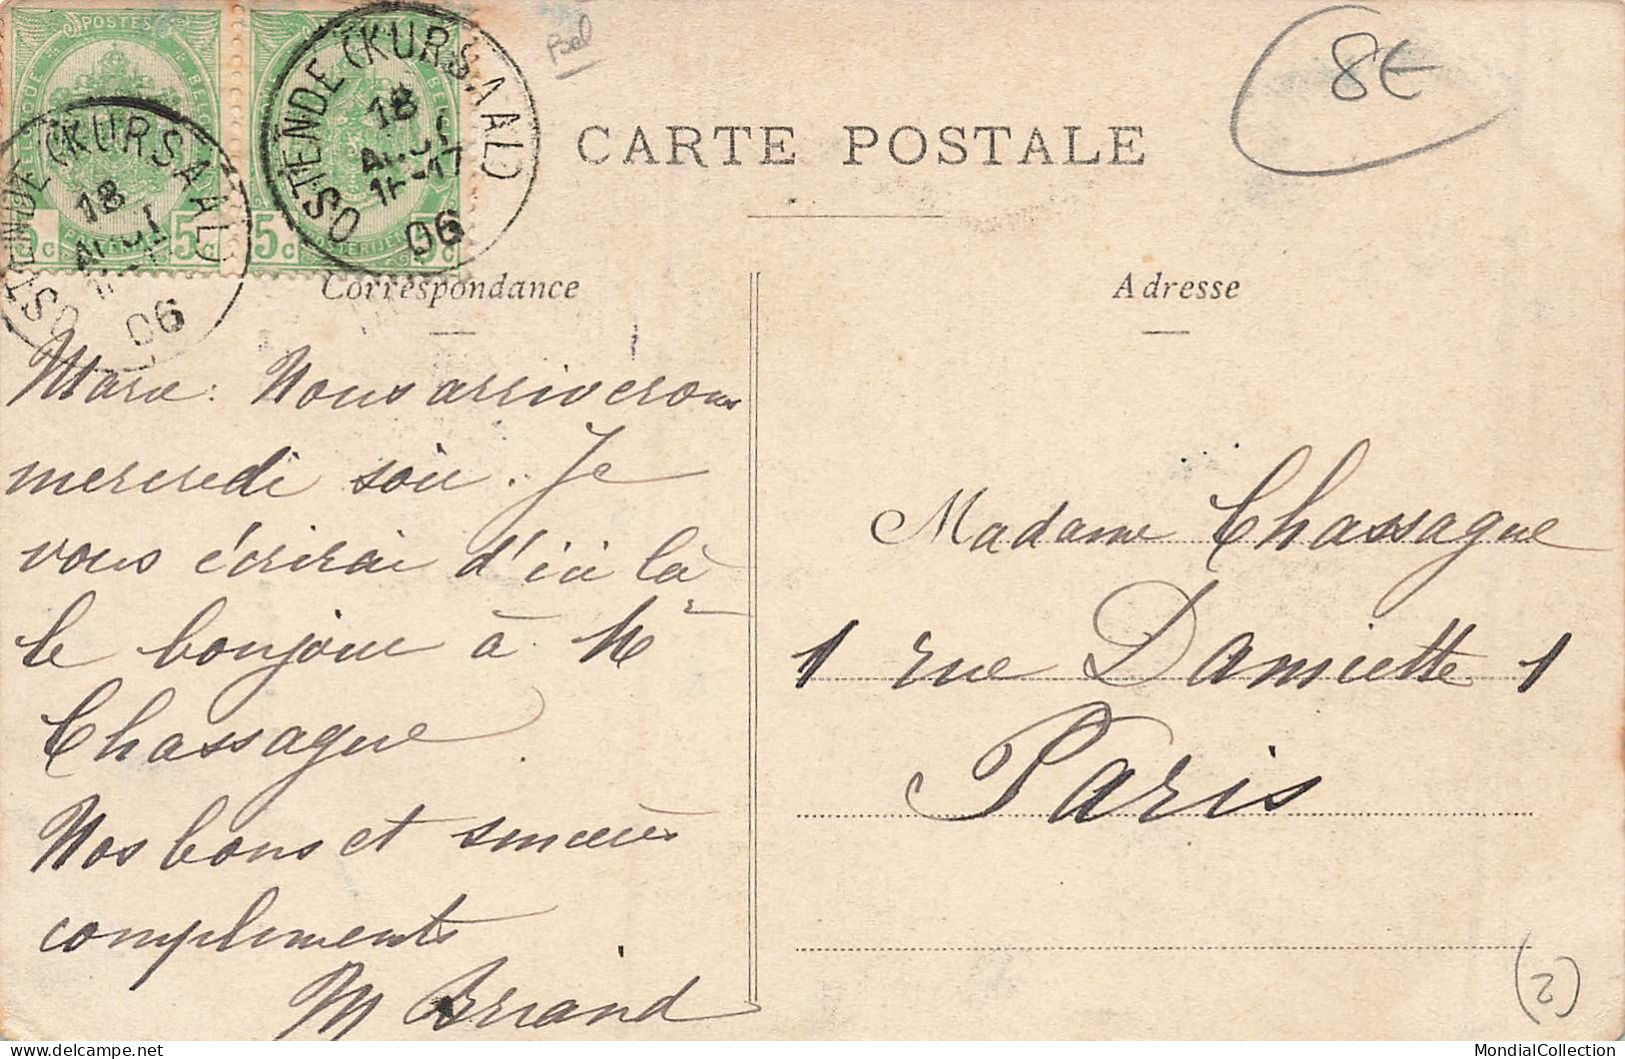 POSTES
BELGIQUE
5c
5c
POSTERIJEN
5c
5c
OSTENDE (KURSAAL)
18
06
OSTENDE (KURSAAL)
18
AOUT
16-17
06
Bel
8€
CARTE POSTALE
Correspondance
Adresse
Nous arriverons
mercredi soir. Je
vous écrirai d'ici là
le bonjour à Mr
Chassagne
Nos bons et sincères
compliments
M Briand
Madame Chassagne
1 rue Damiette 1
Paris
(2)
MondialCollection